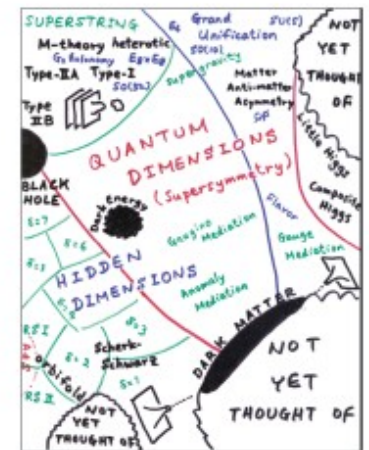 SUPERSTRING
M-theory heterotic
G₂ Holonomy E₈×E₈
Type-IIA Type-I
SO(32)
Type
IIB
E₆ Grand SU(5)
Unification
SO(10)
Supergravity
Matter
Anti-matter
Asymmetry
NOT
YET
THOUGHT
OF
Little Higgs
Composite
Higgs
QUANTUM
DIMENSIONS
(Supersymmetry)
BLACK
HOLE
Dark Energy
Flavor
Gaugino
Mediation
Gauge
Mediation
Anomaly
Mediation
δ=7
δ=6
HIDDEN
DIMENSIONS
δ=3
RSI
δ=2
Scherk-
Schwarz
orbifold
δ=1
DARK MATTER
NOT
YET
THOUGHT OF
NOT
YET
THOUGHT OF